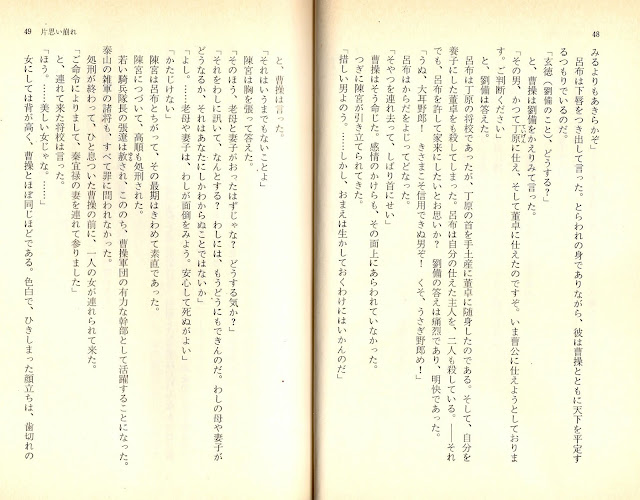 48
みるよりもあきらかぞ」
呂布は下唇をつき出して言った。とらわれの身でありながら、彼は曹操とともに天下を平定す
るつもりでいるのだ。
「玄徳（劉備のこと）、どうする？」
と、曹操は劉備をかえりみて言った。
「その男、かつて丁原に仕え、そして董卓に仕えたのですぞ。いま曹公に仕えようとしておりま
す。ご判断ください」
と、劉備は答えた。
呂布は丁原の将校であったが、丁原の首を手土産に董卓に随身したのである。そして、自分を
養子にした董卓をも殺してしまった。呂布は自分の仕えた主人を、二人も殺している。――それ
でも、呂布を許して家来にしたいとお思いか？　劉備の答えは痛烈であり、明快であった。
「うぬ、大耳野郎！　きさまこそ信用できぬ男ぞ！　くそ、うさぎ野郎め！」
呂布はからだをよじってどなった。
「そやつを連れ去って、しばり首にせい」
曹操はそう命じた。感情のかけらも、その面上にあらわれていなかった。
つぎに陳宮が引き立てられてきた。
「惜しい男よのう。……しかし、おまえは生かしておくわけにはいかんのだ」
49 片思い崩れ
と、曹操は言った。
「それはいうまでもないことよ」
陳宮は胸を張って答えた。
「そのほう、老母と妻子がおったはずじゃな？　どうする気か？」
「それをわしに訊いて、なんとする？　わしには、もうどうにもできんのだ。わしの母や妻子が
どうなるか、それはあなたにしかわからぬことではないか」
「よし。……老母や妻子は、わしが面倒をみよう。安心して死ぬがよい」
「かたじけない」
陳宮は呂布とちがって、その最期はきわめて素直であった。
陳宮につづいて、高順も処刑された。
若い騎兵隊長の張遼は赦され、こののち、曹操軍団の有力な幹部として活躍することになった。
泰山の雑軍の諸将も、すべて罪に問われなかった。
処刑が終わって、ひと息ついた曹操の前に、一人の女が連れられて来た。
「ご命令によりまして、秦宜禄の妻を連れて参りました」
と、連れて来た将校は言った。
「ほう。……美しい女じゃな。……」
女にしては背が高く、曹操とほぼ同じほどである。色白で、ひきしまった顔立ちは、歯切れの